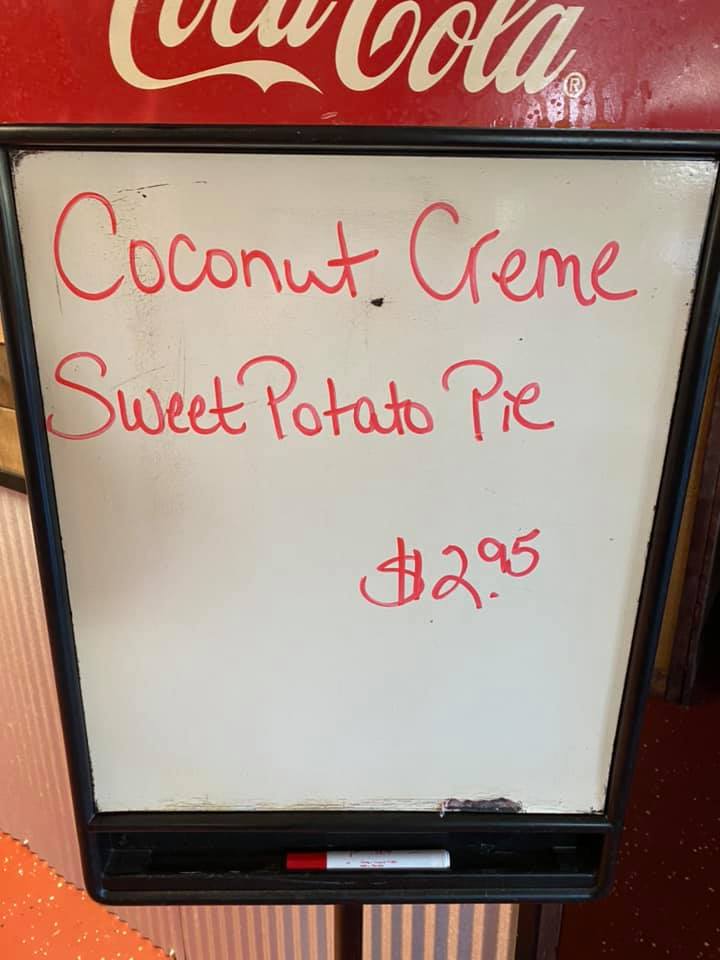 Coca-Cola®
Coconut Creme
Sweet Potato Pie
$2.95